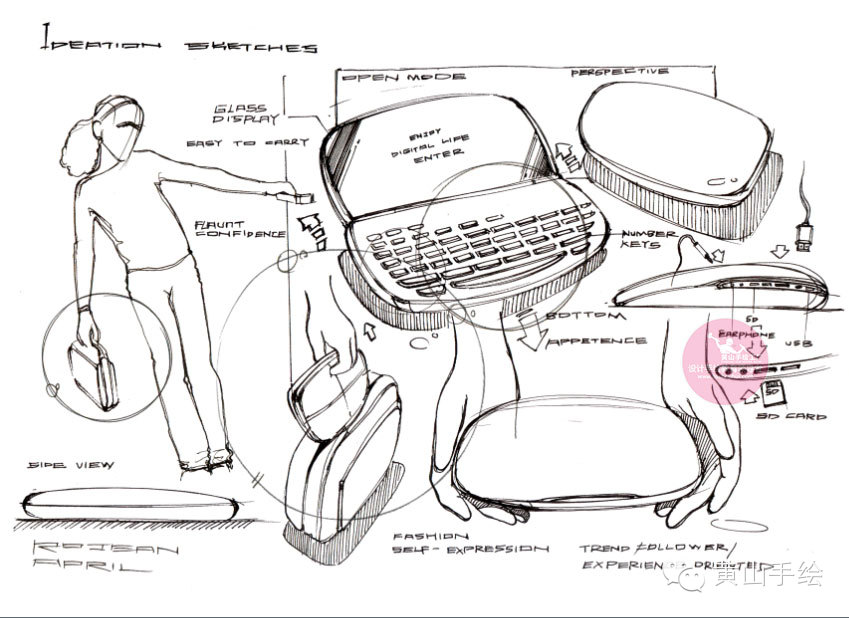 IDEATION SKETCHES
OPEN MODE
PERSPECTIVE
GLASS
DISPLAY
EASY TO CARRY
ENJOY
DIGITAL LIFE
ENTER
FLAUNT
CONFIDENCE
NUMBER
KEYS
BOTTOM
APPETENCE
SD
EARPHONE
USB
黄山手绘
SD
SD CARD
SIDE VIEW
ROJEAN
APRIL
FASHION
SELF-EXPRESSION
TREND FOLLOWER/
EXPERIENCE ORIECTED
黄山手绘